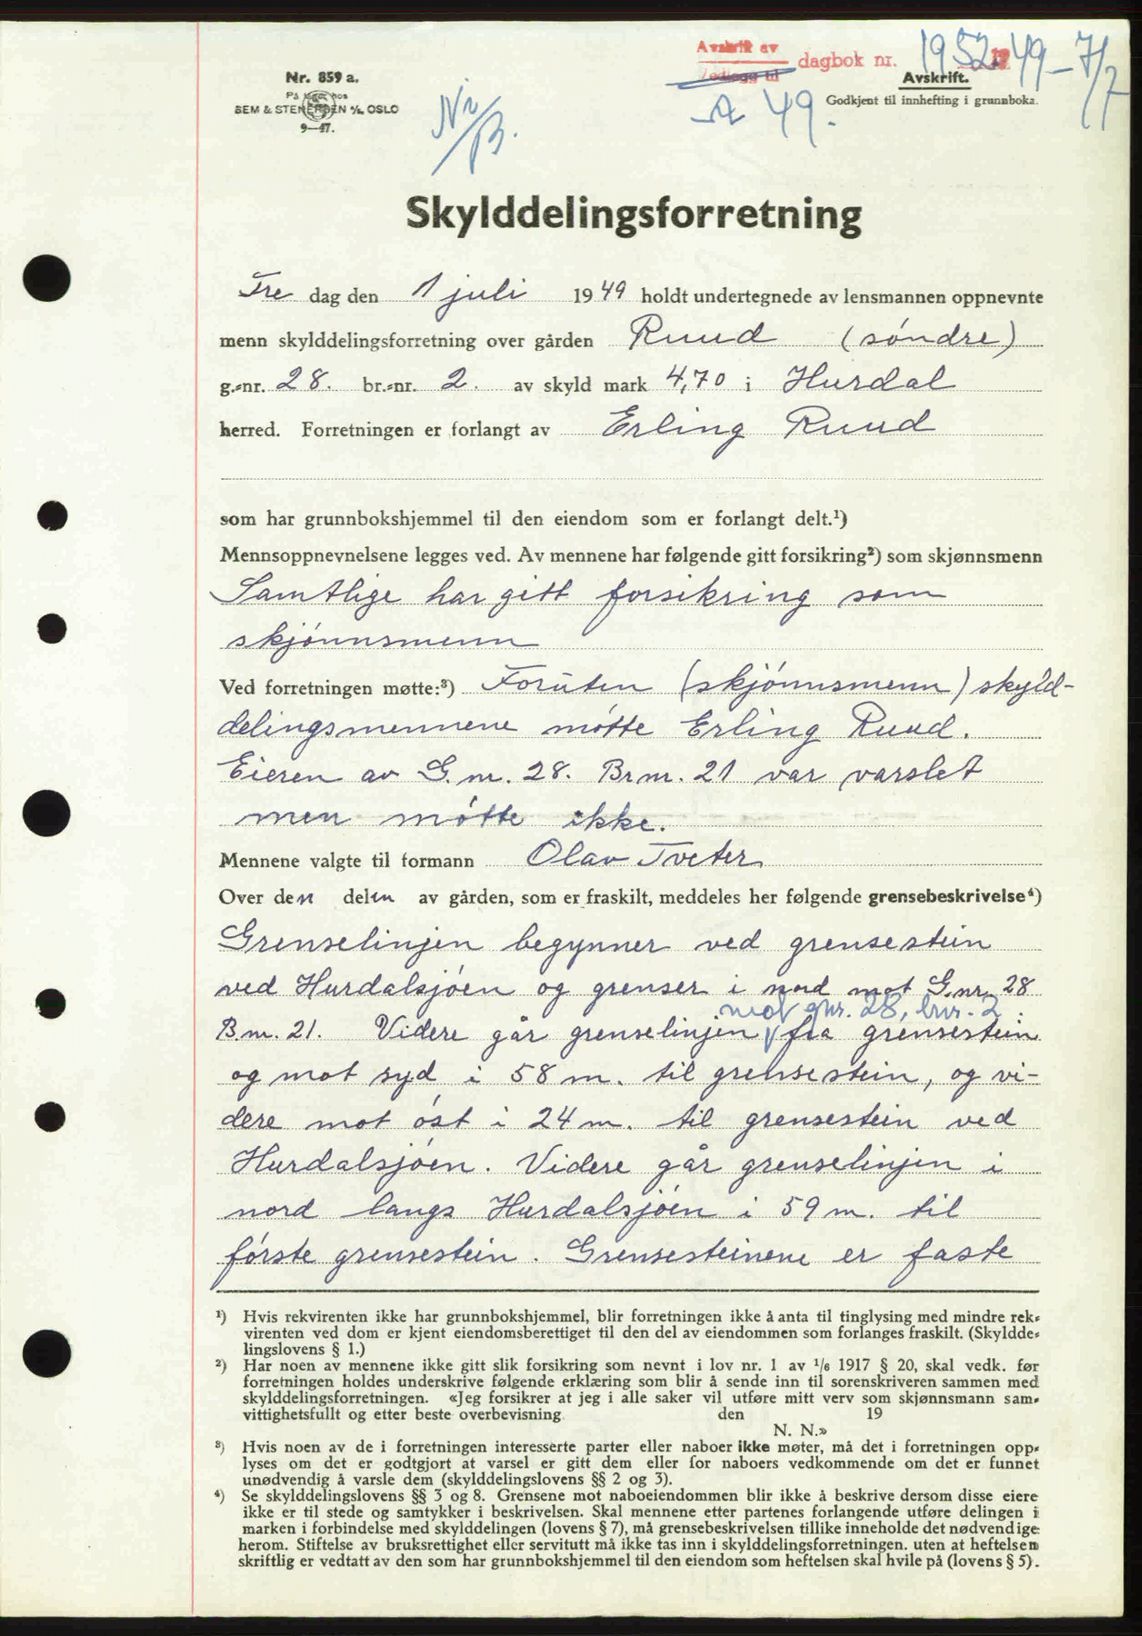 Avskrift av
Vedlegg til
dagbok nr. 1952 49 – 7/7
A 49.
Nr/B.
Nr. 859 a.
På lager hos
SEM & STENERSEN A/S. OSLO
9—47.
Avskrift.
Godkjent til innhefting i grunnboka.
Skylddelingsforretning
Fre dag den 1 juli 1949 holdt undertegnede av lensmannen oppnevnte
menn skylddelingsforretning over gården Ruud (søndre)
g.-nr. 28. br.-nr. 2. av skyld mark 4,70 i Hurdal
herred. Forretningen er forlangt av Erling Ruud
som har grunnbokshjemmel til den eiendom som er forlangt delt.¹)
Mennsoppnevnelsene legges ved. Av mennene har følgende gitt forsikring²) som skjønnsmenn
Samtlige har gitt forsikring som
skjønnsmenn
Ved forretningen møtte:³) Foruten (skjønnsmenn) skyld-
delingsmennene møtte Erling Ruud.
Eieren av G. nr. 28. Br nr. 21 var varslet
men møtte ikke.
Mennene valgte til formann Olav Tveter
Over den delen av gården, som er fraskilt, meddeles her følgende grensebeskrivelse⁴)
Grenselinjen begynner ved grensestein
ved Hurdalsjøen og grenser i nord mot G. nr. 28
mot gnr. 28, brnr. 2
B nr. 21. Videre går grenselinjen fra grensestein
og mot syd i 58 m. til grensestein, og vi-
dere mot øst i 24 m. til grensestein ved
Hurdalsjøen. Videre går grenselinjen i
nord langs Hurdalsjøen i 59 m. til
første grensestein. Grensesteinene er faste
¹) Hvis rekvirenten ikke har grunnbokshjemmel, blir forretningen ikke å anta til tinglysing med mindre rek-
virenten ved dom er kjent eiendomsberettiget til den del av eiendommen som forlanges fraskilt. (Skyldde-
lingslovens § 1.)
²) Har noen av mennene ikke gitt slik forsikring som nevnt i lov nr. 1 av 1/6 1917 § 20, skal vedk. før
forretningen holdes underskrive følgende erklæring som blir å sende inn til sorenskriveren sammen med
skylddelingsforretningen. «Jeg forsikrer at jeg i alle saker vil utføre mitt verv som skjønnsmann sam-
vittighetsfullt og etter beste overbevisning den 19
N. N.»
³) Hvis noen av de i forretningen interesserte parter eller naboer ikke møter, må det i forretningen opp-
lyses om det er godtgjort at varsel er gitt dem eller for naboers vedkommende om det er funnet
unødvendig å varsle dem (skylddelingslovens §§ 2 og 3).
⁴) Se skylddelingslovens §§ 3 og 8. Grensene mot naboeiendommen blir ikke å beskrive dersom disse eiere
ikke er til stede og samtykker i beskrivelsen. Skal mennene etter partenes forlangende utføre delingen i
marken i forbindelse med skylddelingen (lovens § 7), må grensebeskrivelsen tillike inneholde det nødvendige
herom. Stiftelse av bruksrettighet eller servitutt må ikke tas inn i skylddelingsforretningen, uten at heftelsen
skriftlig er vedtatt av den som har grunnbokshjemmel til den eiendom som heftelsen skal hvile på (lovens § 5).